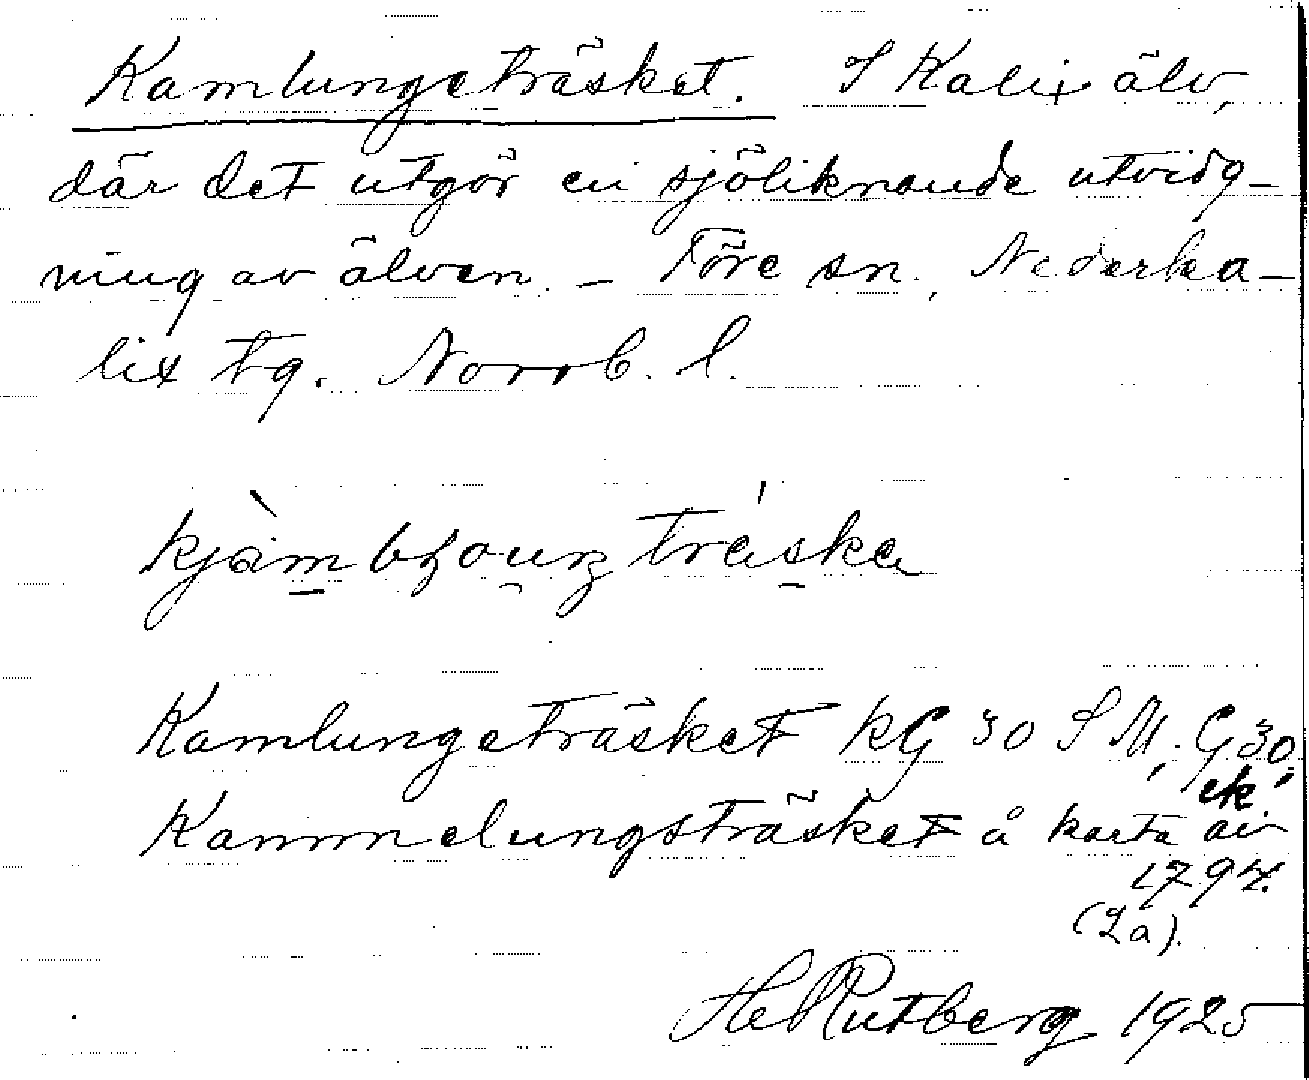 Kamlungeträsket. I Kalix älv,
där det utgör en sjöliknande utvidg-
ning av älven. - Töre sn, Nederka-
lix tg. Norrb. l.
träska
Kamlungeträsket KG 30 SM, G 30,
ek.
Kammelungsträsket å karta av
1794.
(La).
Rutberg 1925